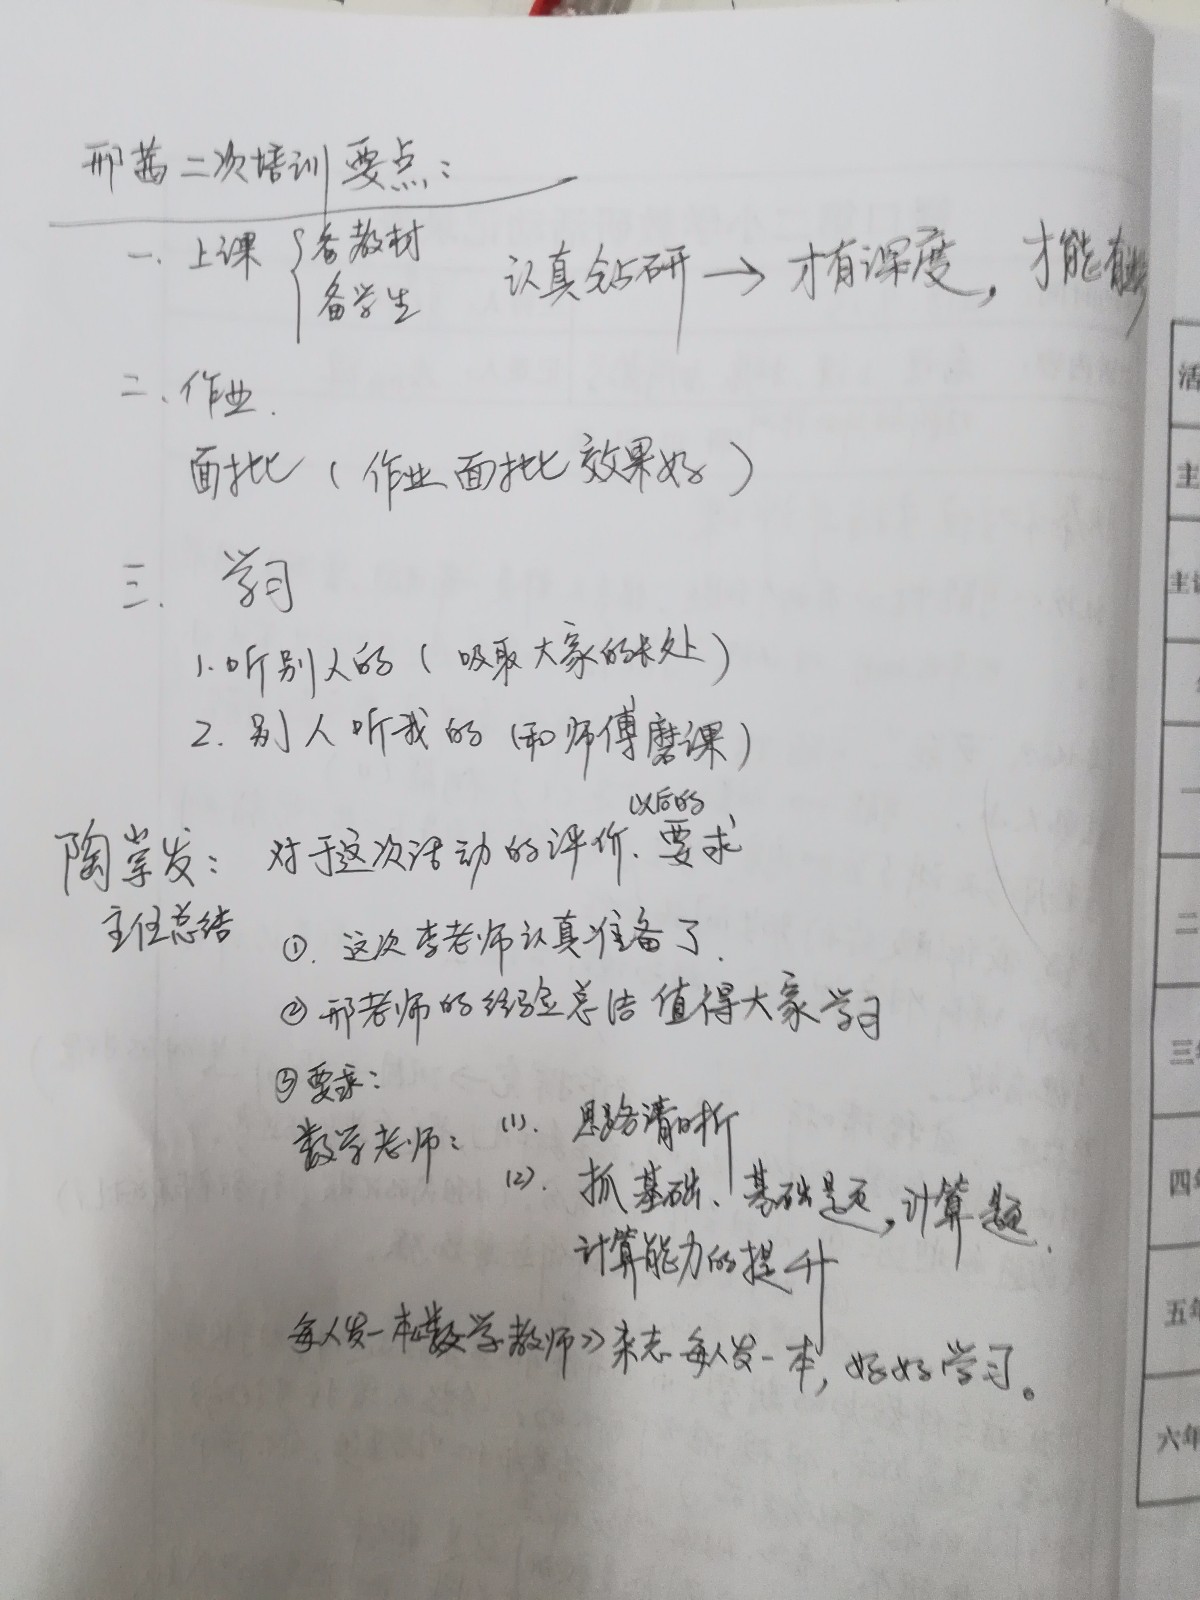 邢茜二次培训要点:
一. 上课 { 备教材
备学生
认真钻研 → 才有深度, 才能有
二、作业.
面批 (作业面批效果好)
三. 学习
1. 听别人的 (吸取大家的长处)
2. 别人听我的 (和师傅磨课)
陶掌发: 对于这次活动的评价、以后的要求
主任总结
①. 这次李老师认真准备了.
② 邢老师的经验总洁值得大家学习
③ 要求:
数学老师: (1). 思路清晰
(2). 抓基础、基础题, 计算题.
计算能力的提升
每人发一本《数学教师》杂志每人发一本, 好好学习。
活
主
主讲
一
二
三年
四年
五年
六年